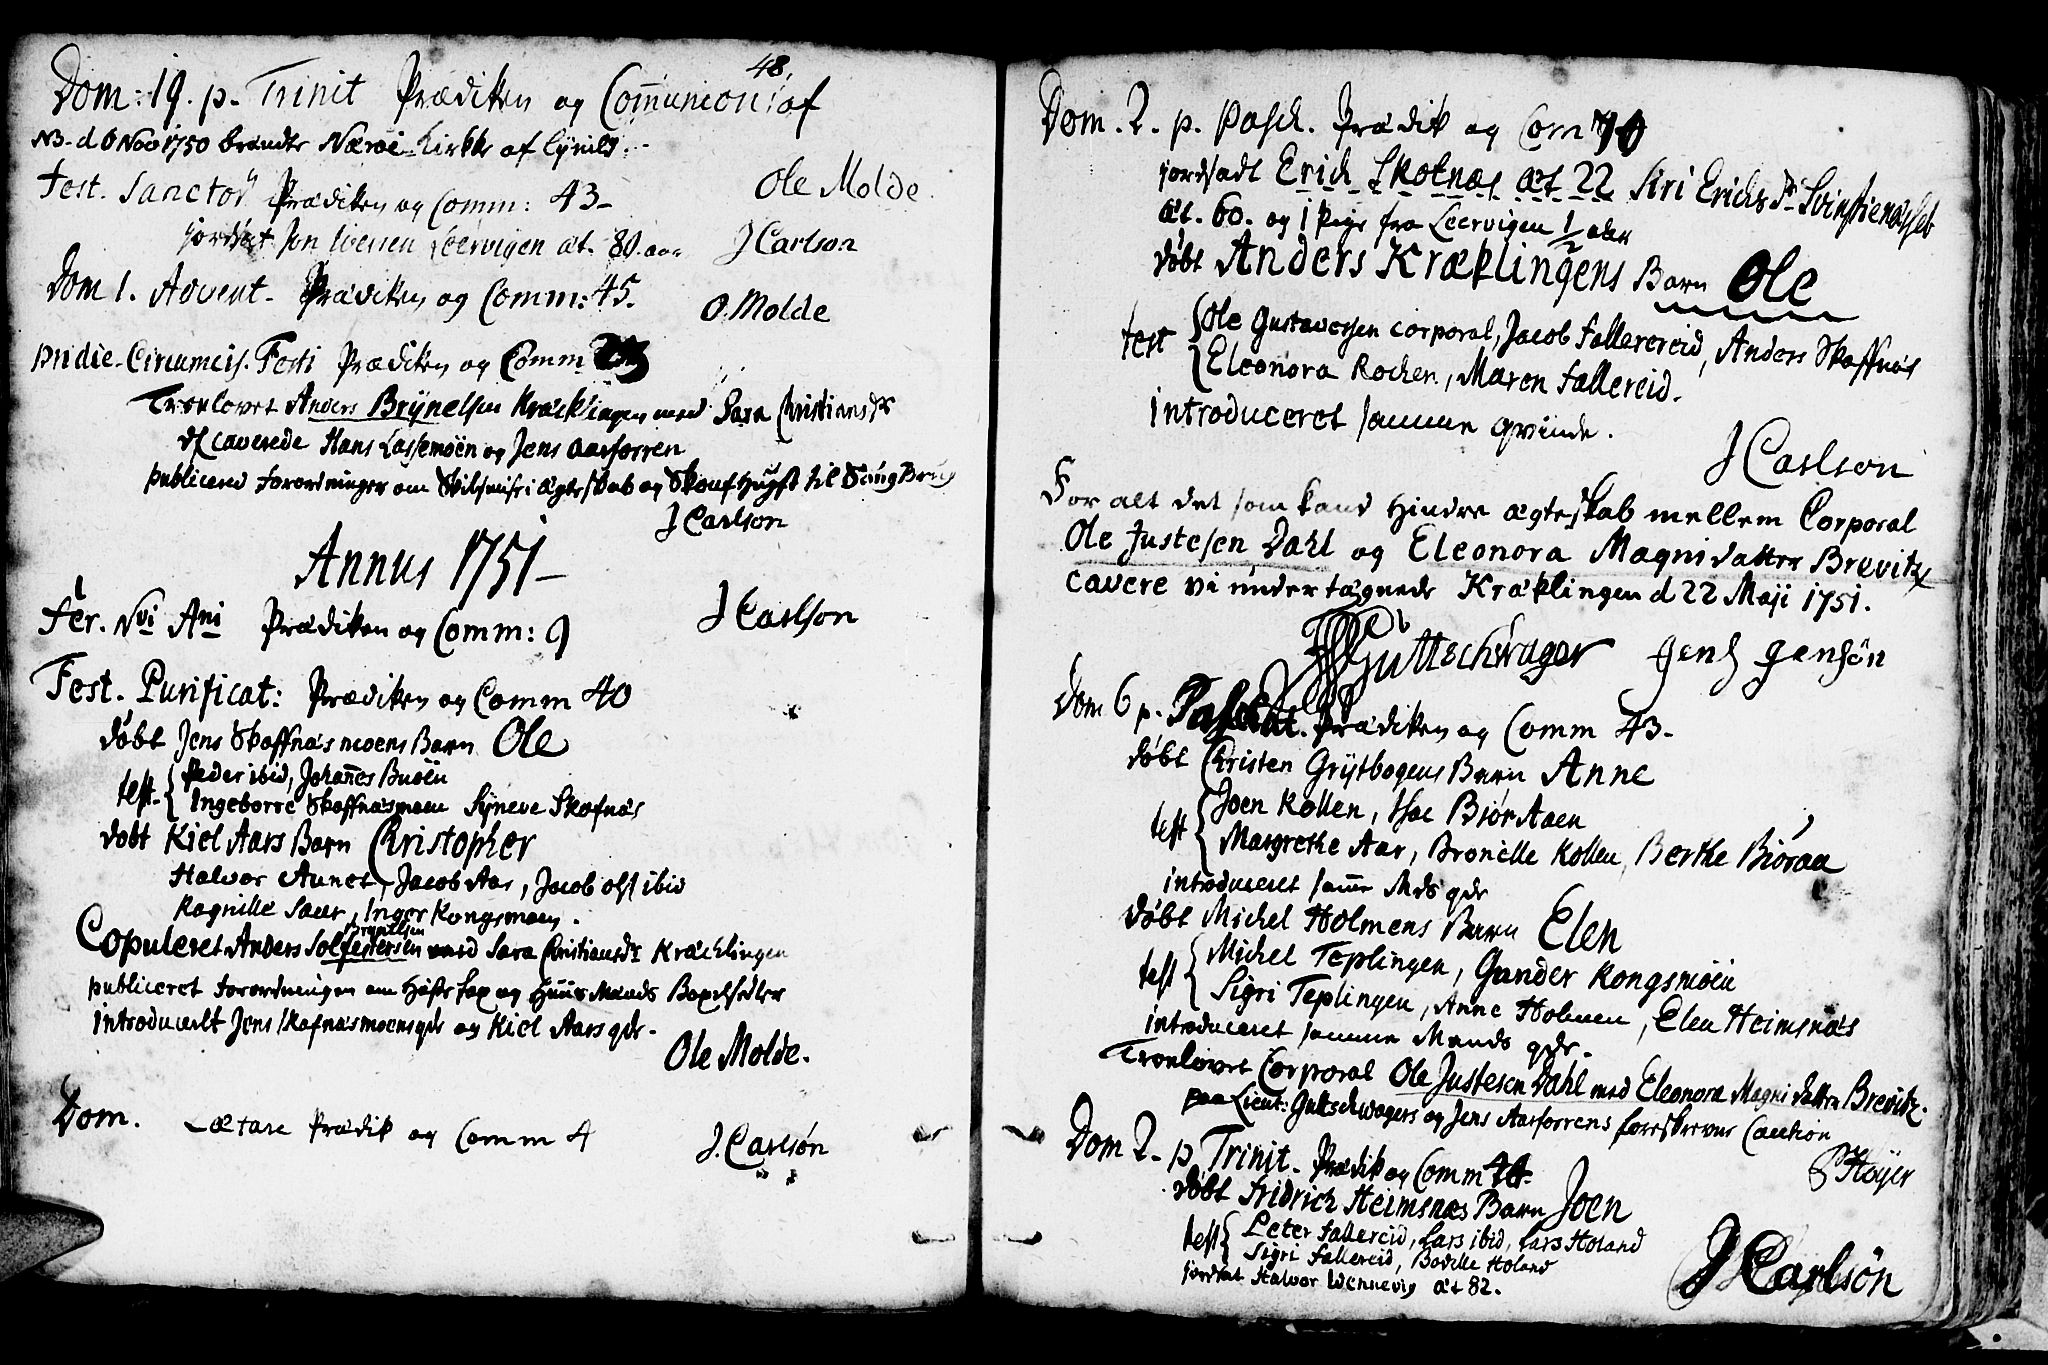 48.
Dom: 19. p. Trinit Prædiken og Communion af
NB. d 6 Nov 1750 brendte Næröe Kirke af Lynild.
Ole Molde.
Fest. Sanctor. Prædiken og Comm: 43-
jordsat Jon Leervigen æt. 80. aar
J Carlson
Dom 1. Advent. Prædiken og Comm: 45.
O. Molde
pridie Circumcis. Festi Prædiken og Comm
Troelovet Anders Brynelsen Kræcklingen med Sara Christiansdr
df caverede Hans Lassemoen og Jens Aarforren
publicered forordninger om Skilsmise i ægteskab og Skoufhugst til Saug Brug
J Carlson
Annus 1751-
Fer. Nvi Ani Prædiken og Comm: 9
J Carlson
Fest. Purificat: Prædiken og Comm 40
döbt Jens Skoffnäsmoens Barn Ole
test. Peder ibid, Johannes Buöen
Ingeborre Skoffnäsmoen Syneve Skofnäs
döbt Kiel Aars Barn Christopher
Halvor Aunet, Jacob Aar, Jacob ols ibid
Ragnille Saur, Inger Kongsmoen.
Brynelsen
Copuleret Anders Solfestersen med Sara Christiansdr Kræcklingen
publiceret forordningen om Heste Tax og Huus Mands Böxelsedler
introducerlt Jens Skofnäsmoens qde og Kiel Aars qde.
Ole Molde.
Dom. Lætare Prædik og Comm 4
J. Carlsön
Dom. 2. p. Pasch. Prædik og Com 70
jordsadt Erich Skotnæs æt 22 Siri Erichs dr Svinstienöesset
æt. 60. og 1 pige fra Leervigen 1/2 aar
döbt Anders Kræklingens Barn Ole
test Ole Gustavessen corporal, Jacob Fallerereid, Anders Skoffnäs
Eleonora Rochen, Maren Fallereid.
introduceret samme qvinde.
J Carlson
For alt det som kand hindre ægteskab mellem Corporal
Ole Justesen Dahl og Eleonora Magnidatter Brevitz
cavere vi undertægnede Kræklingen d 22 Maji 1751.
Güttschwager Jens Jensön
Dom 6 p. Paschat. Prædiken og Comm 43-
döbt Christen Grytbogens Barn Anne
test Joen Kollen, Isac Biör Aaen
Margrethe Aar, Bronille Kollen, Berthe Biöraa
introduceret samme Mds qde
döbt Michel Holmens Barn Elen
test Michel Teplingen, Gunder Kongsmoen
Sigri Teplingen, Anne Holmen, Elen Heimsnäs
introduceret samme Mands qde.
Troelovet Corporal Ole Justesen Dahl med Eleonora Magni datter Brevitz.
paa Lieut: Guttschwagers og Jens Aarforrens foreskrevne Caution
Höyer
Dom 2. p Trinit. Prædik og Comm
döbt Fridrich Heimsnæs Barn Joen
test Peter Fallereid, Lars ibid, Lars Holand
Sigri Fallereid, Bodille Holand
jordsat Halvor Wennevig æt 82.
J Carlsön